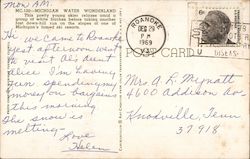 Mon AM.
MC-120-MICHIGAN WATER WONDERLAND
This pretty young skier relaxes amid a
group of white birches before taking another
fast downhill run on the slopes of one of
Michigan's famed ski resorts.
Hi- we came to Roanoke
yest afternoon went
to visit Al's aunt
Alice. Im having
fun spending my
money on bargains
this morning
The snow is
melting-
Love
Helen
ROANOKE
DEC 29
PM
1969
POST CARD
Mrs A. L. Mynatt
4600 Addison Ave
Knoxville, Tenn
37918